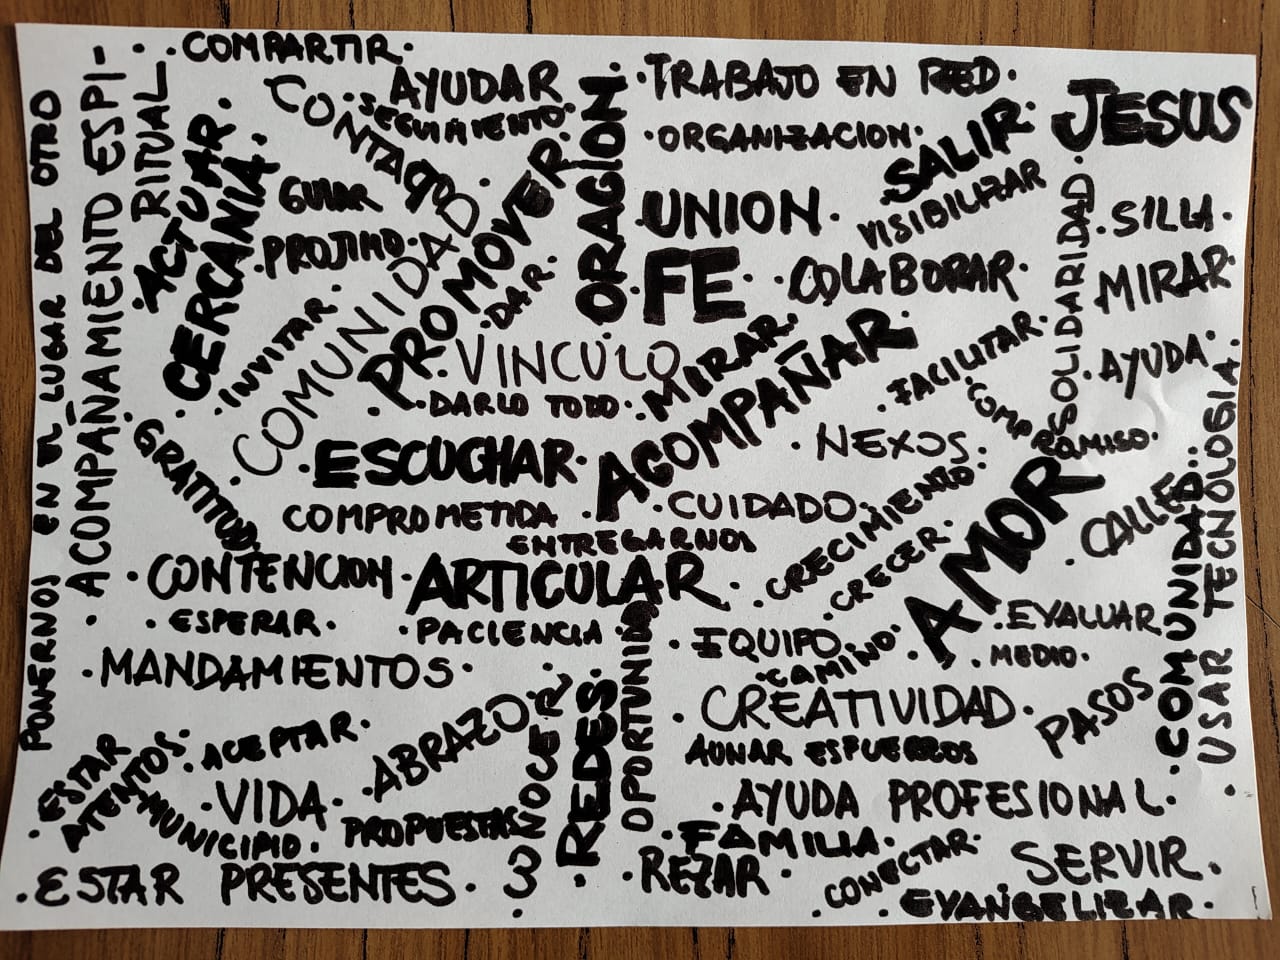 COMPARTIR
CONTACTO
AYUDAR
SEGUIMIENTO
ORACION
TRABAJO EN RED
ORGANIZACION
SALIR
JESUS
PONERNOS EN EL LUGAR DEL OTRO
ACOMPAÑAMIENTO ESPI-
RITUAL
ACTUAR
CERCANIA
GUIAR
PROJIMO
INVITAR
COMUNIDAD
PROMOVER
DAR
UNION
VISIBILIZAR
SOLIDARIDAD
SILLA
FE
COLABORAR
MIRAR
VINCULO
MIRAR
ACOMPAÑAR
FACILITAR
AYUDA
DARLO TODO
COMPROMISO
GRATITUD
ESCUCHAR
NEXOS
COMPROMETIDA
CUIDADO
CRECIMIENTO
AMOR
CALLE
COMUNIDAD
USAR TECNOLOGIA
ENTREGARNOS
CONTENCION
ARTICULAR
CRECER
ESPERAR
PACIENCIA
OPORTUNIDAD
EQUIPO
CAMINO
EVALUAR
MEDIO
MANDAMIENTOS
REDES
CREATIVIDAD
PASOS
ESTAR
ATENTOS
ACEPTAR
ABRAZO
CONOCER
AUNAR ESFUERZOS
VIDA
MUNICIPIO
PROPUESTAS
AYUDA PROFESIONAL
FAMILIA
ESTAR PRESENTES
REZAR
CONECTAR
SERVIR
EVANGELIZAR